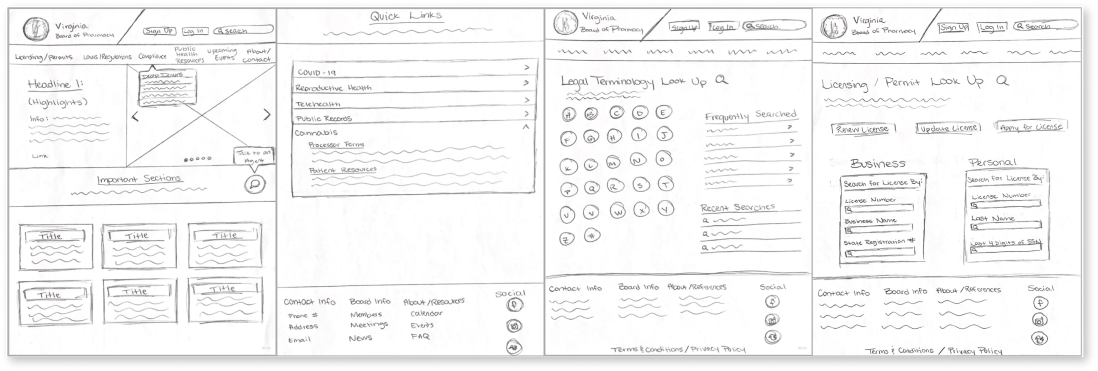 Virginia
Board of Pharmacy
Sign Up
Log In
Search
Licensing/Permits
Laws/Regulations
Compliance
Public
Health
Resources
Upcoming
Events
About/
Contact
Headline 1:
(Highlights)
Info:
Link
Drop Downs
Talk to an
Agent
Important Sections
Title
Title
Title
Title
Title
Title
Quick Links
COVID-19
Reproductive Health
Telehealth
Public Records
Cannabis
Processor Forms
Patient Resources
Contact Info
Board Info
About/Resources
Social
Phone #
Members
Calendar
Address
Meetings
Events
Email
News
FAQ
Virginia
Board of Pharmacy
Sign Up
Log In
Search
Legal Terminology Look Up
A B C D E
F G H I J
K L M N O
P Q R S T
U V W X Y
Z #
Frequently Searched
Recent Searches
Contact Info
Board Info
About/References
Social
Terms & Conditions / Privacy Policy
Virginia
Board of Pharmacy
Sign Up
Log In
Search
Licensing / Permit Look Up
Renew License
Update License
Apply for License
Business
Search for License By:
License Number
Business Name
State Registration #
Personal
Search for License By:
License Number
Last Name
Last 4 Digits of SSN
Contact Info
Board Info
About/References
Social
Terms & Conditions / Privacy Policy